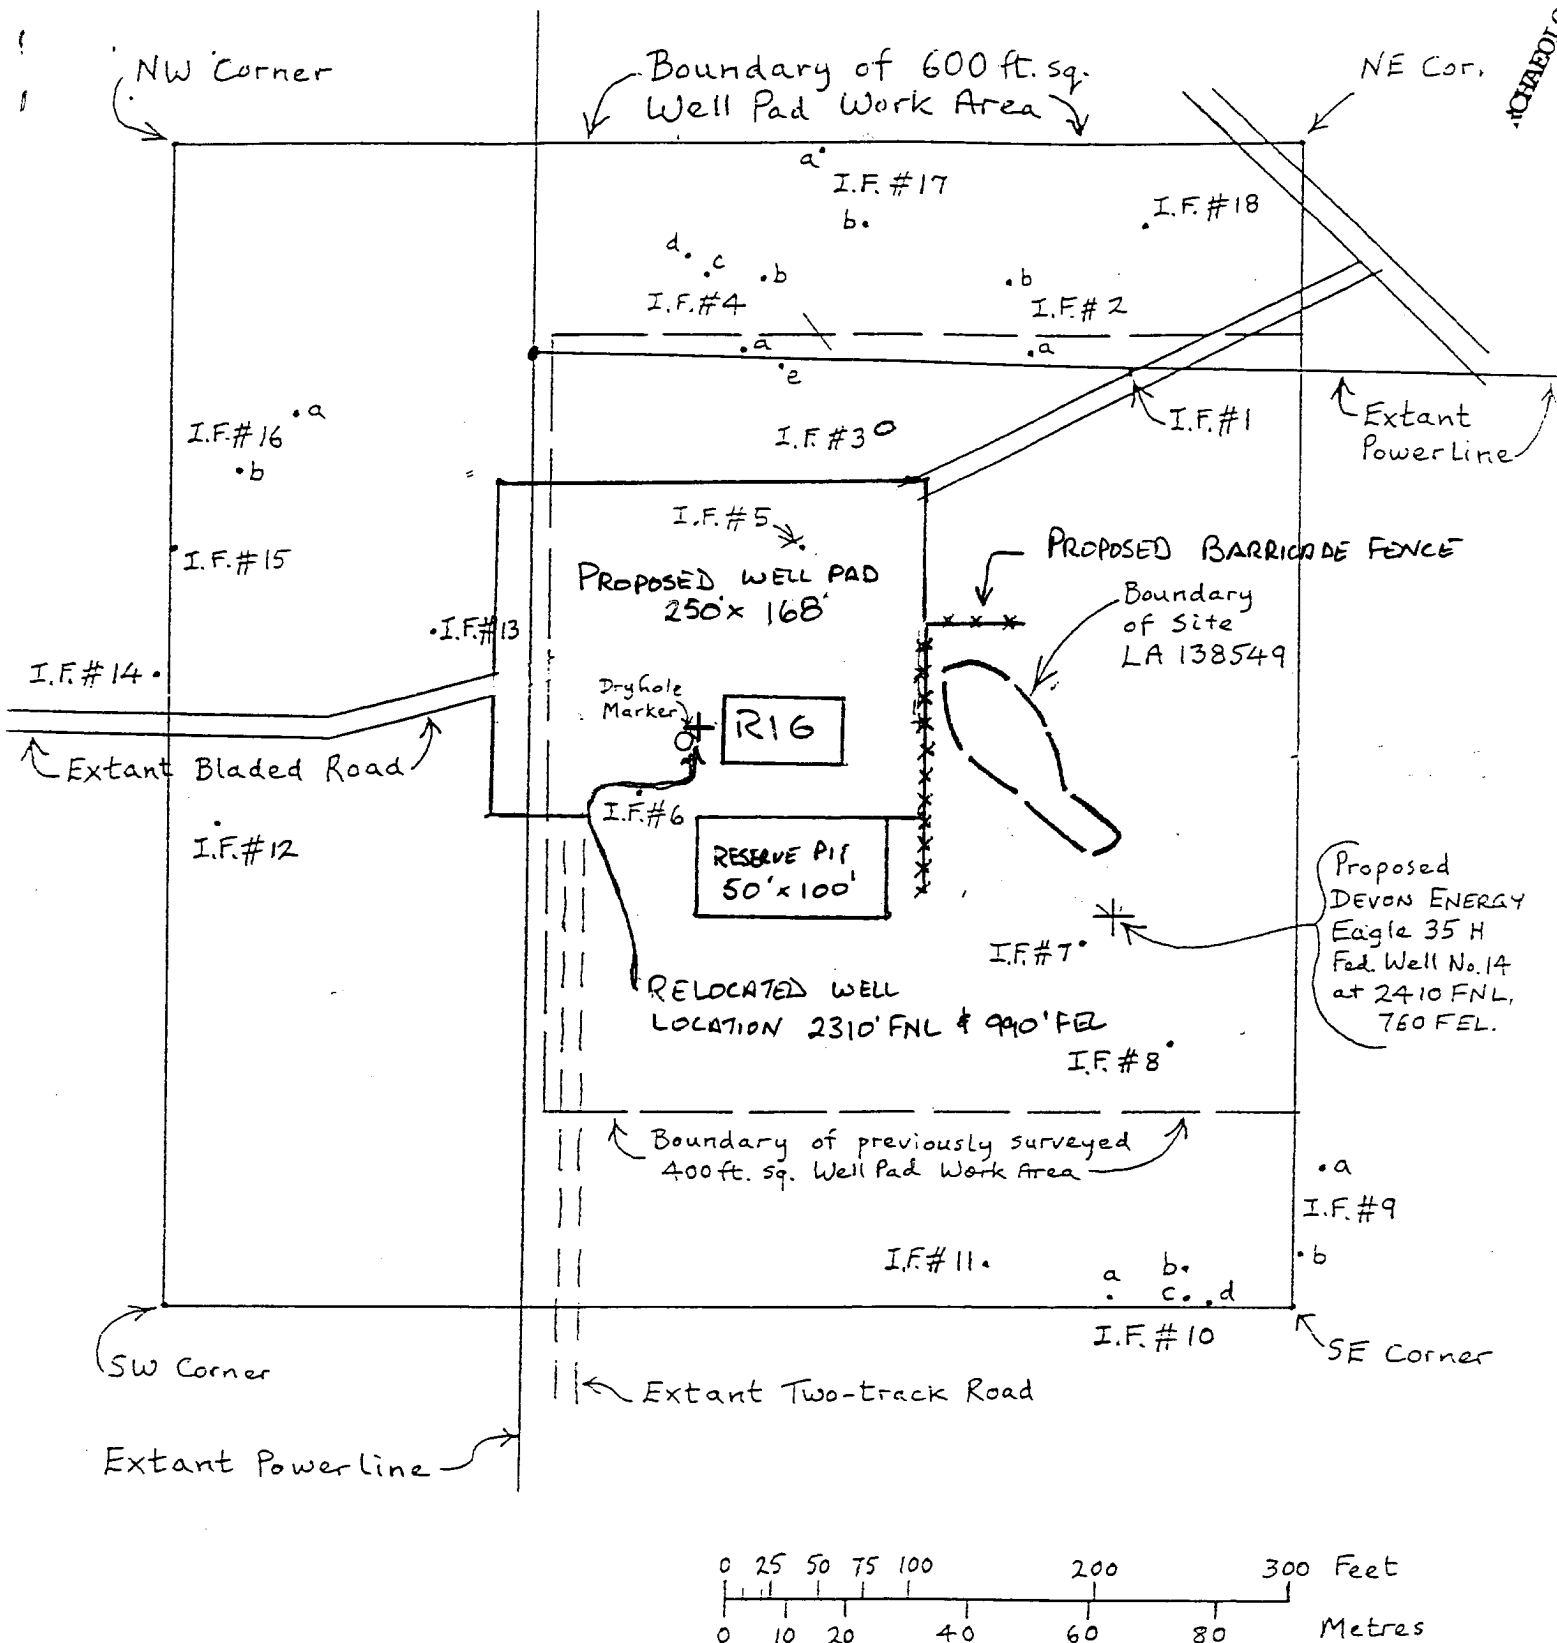 NW Corner
Boundary of 600 ft. sq.
Well Pad Work Area
NE Cor.
a
I.F. #17
b
I.F. #18
d
c
b
I.F. #4
b
I.F. #2
a
a
e
I.F. #1
Extant
Powerline
I.F. #16
a
b
I.F. #3
I.F. #5
I.F. #15
PROPOSED WELL PAD
250' x 168'
PROPOSED BARRICADE FENCE
Boundary
of Site
LA 138549
I.F. #13
I.F. #14
Dryhole
Marker
RIG
Extant Bladed Road
I.F. #6
I.F. #12
RESERVE PIT
50' x 100'
Proposed
DEVON ENERGY
Eagle 35 H
Fed. Well No. 14
at 2410 FNL,
760 FEL.
I.F. #7
RELOCATED WELL
LOCATION 2310' FNL & 990' FEL
I.F. #8
Boundary of previously surveyed
400 ft. sq. Well Pad Work Area
a
I.F. #9
b
I.F. #11
a
b
c
d
I.F. #10
SW Corner
SE Corner
Extant Two-track Road
Extant Powerline
0 25 50 75 100 200 300 Feet
0 10 20 40 60 80 Metres